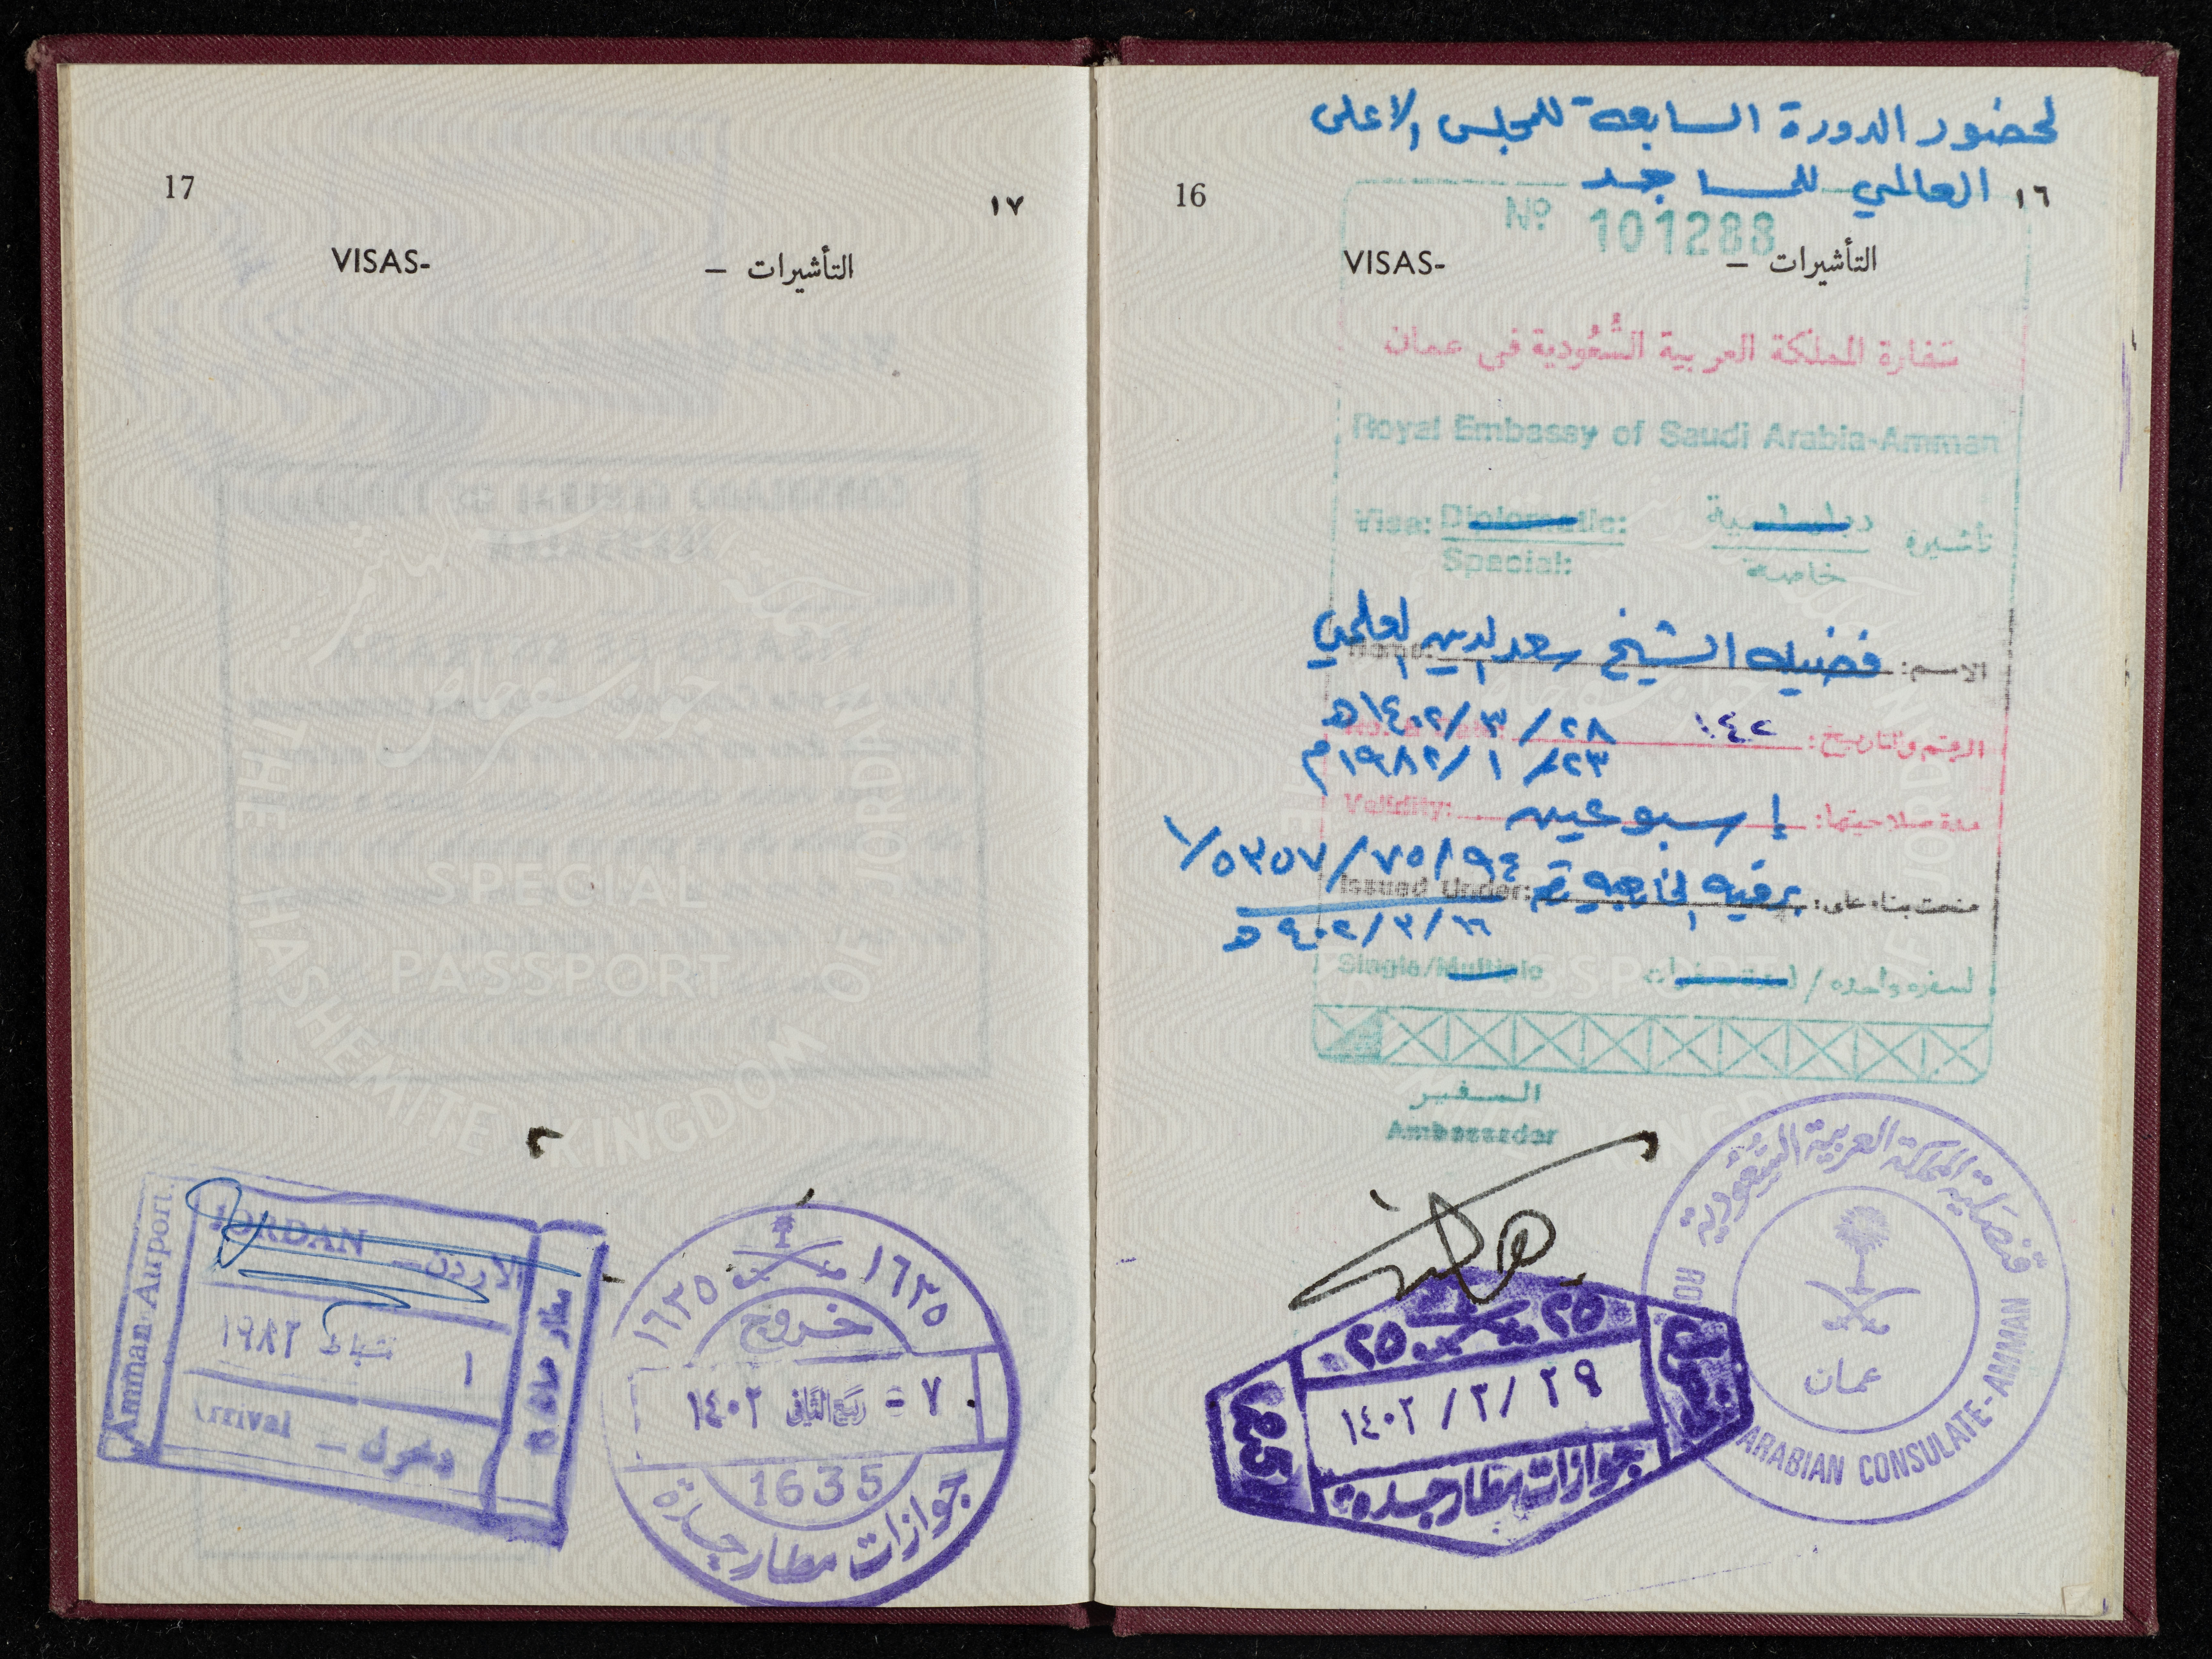 لحضور الدورة السابعة للمجلس الاعلى
العالمي للمساجد
16
١٦
Nº 101288
VISAS-
التأشيرات –
سفارة المملكة العربية السُّعُودية في عمان
Royal Embassy of Saudi Arabia-Amman
Visa: Diplomatic:
تأشيرة دبلماسية
Special:
خاصة
الاسم: فضيلة الشيخ سعد الدين العلمي
Name:
الرقم والتاريخ: ١٤٢ ٢٨ / ٣ / ١٤٠٢ هـ
٢٣ / ١ / ١٩٨٢ م
مدة صلاحيتها: إسبوعين
Validity:
منحت بناء على: برقية الخارجية رقم ٩٤/٧٥/٥٣٥٧/١
Issued Under:
Single/Multiple
لسفره واحده / لعدة سفرات
السفير
Ambassador
قنصلية المملكة العربية السعودية
عمان
ARABIAN CONSULATE-AMMAN
٢٥ ٢٥
١٤٠٢ / ٣ / ٢٩
جوازات مطار جدة
17
١٧
VISAS-
التأشيرات –
جواز سفر خاص
THE HASHEMITE KINGDOM OF JORDAN
SPECIAL
PASSPORT
١٦٣٥ ١٦٣٥
خروج
٧ = ربيع الثاني ١٤٠٢
1635
جوازات مطار جدة
Amman Airport
JORDAN – الاردن
١ شباط ١٩٨٢
Arrival – دخول
مطار عمان